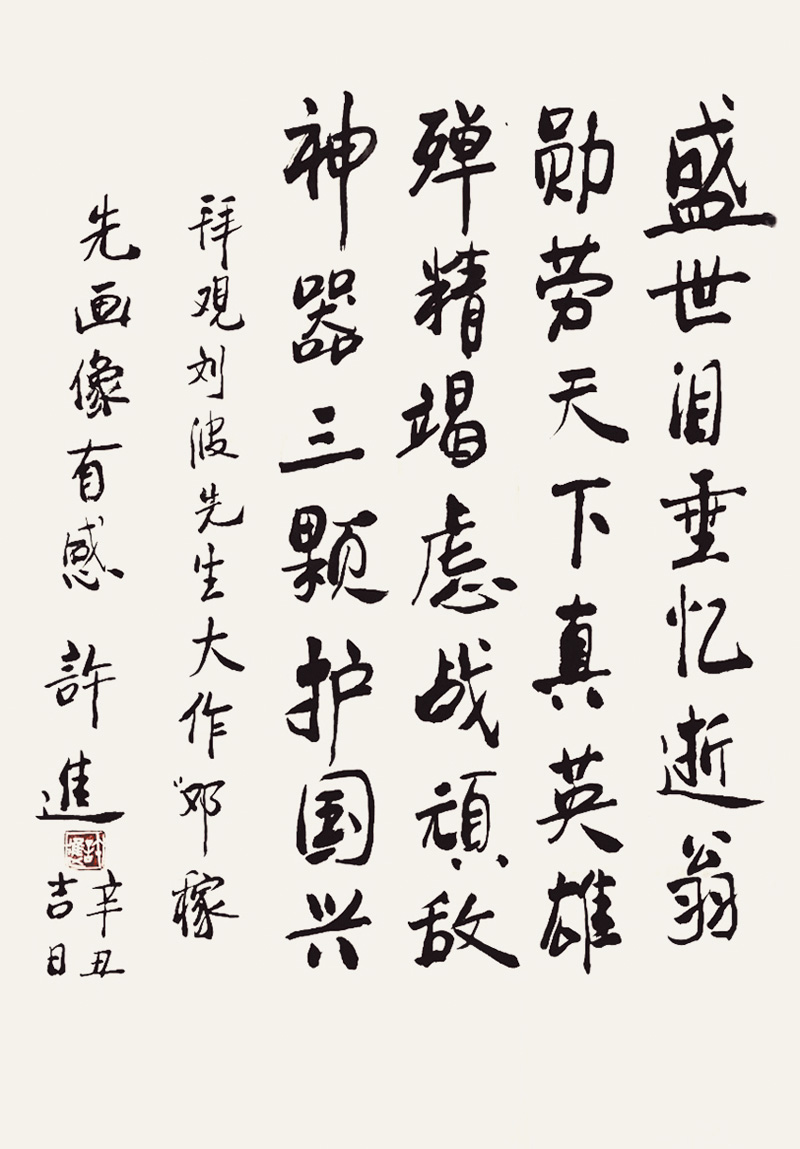 盛世泪垂忆逝翁
勋劳天下真英雄
殫精竭虑战頑敌
神器三颗护国兴
拜观刘波先生大作邓稼
先画像有感 許進
辛丑
吉日
許進